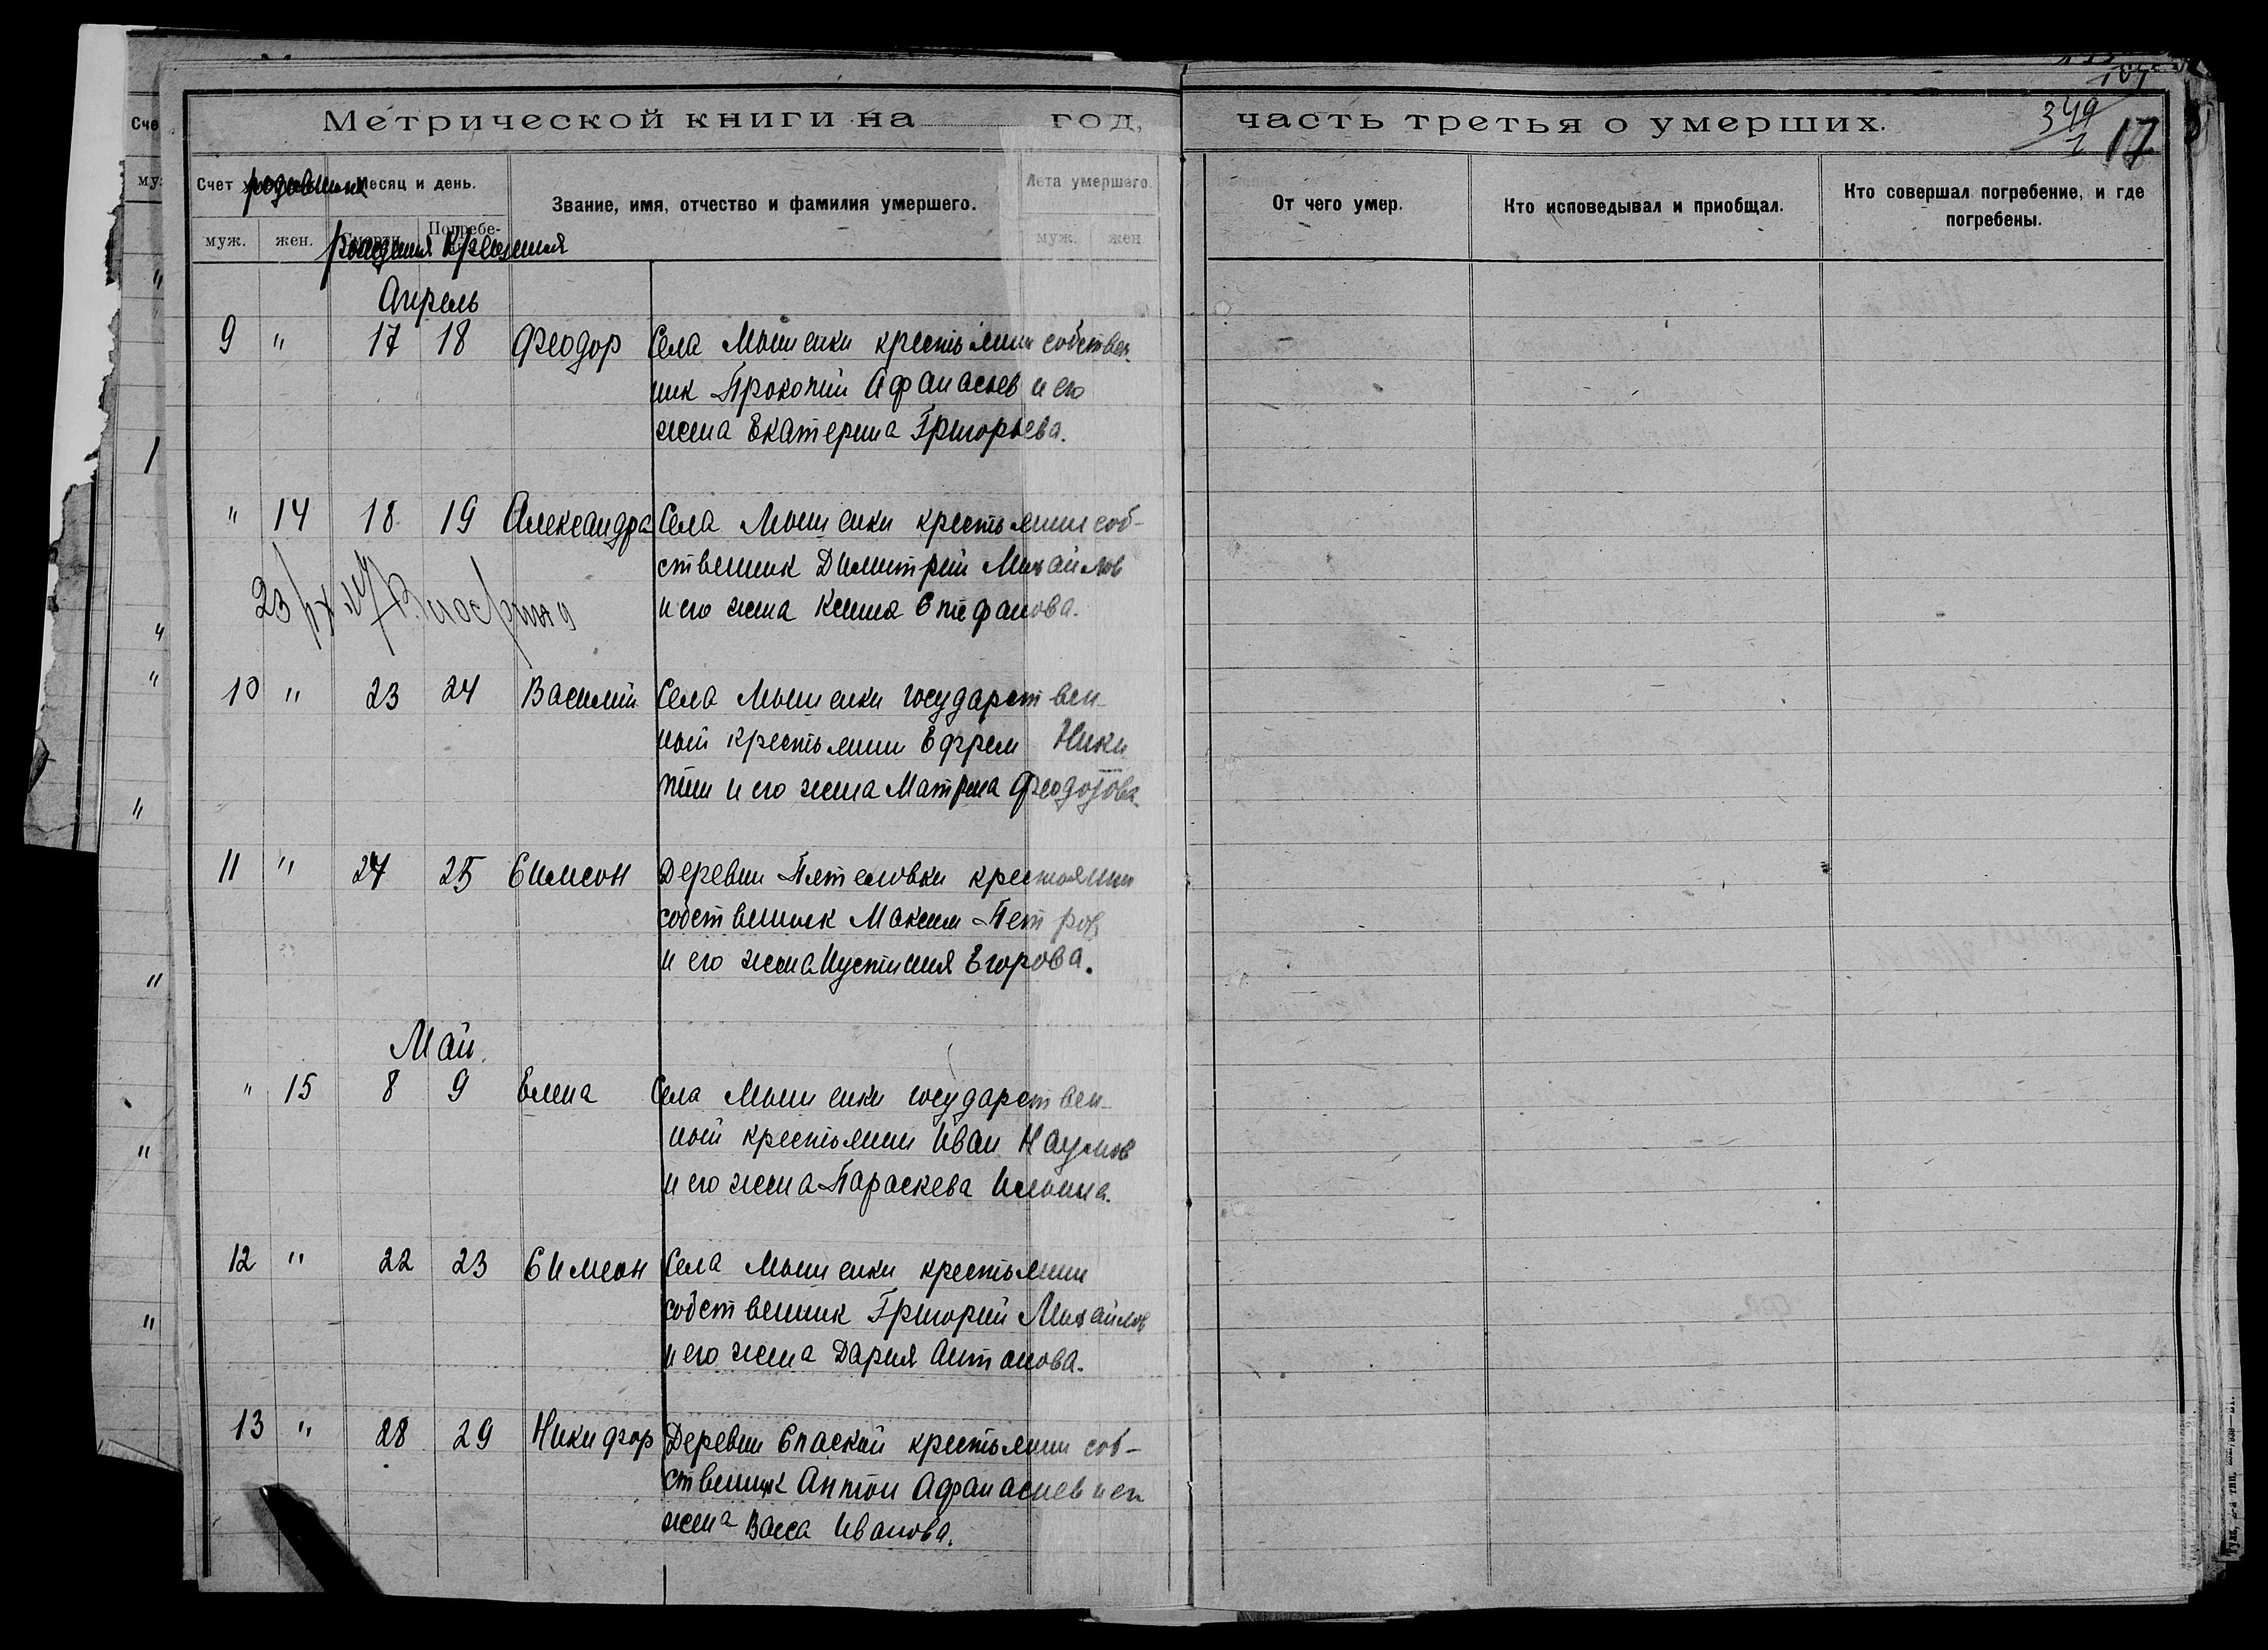 Метрической книги на год, часть третья о умерших.
349
2
17
Счет родившихся Месяц и день.
Звание, имя, отчество и фамилия умершего.
Лета умершего.
От чего умер.
Кто исповедывал и приобщал.
Кто совершал погребение, и где
погребены.
муж. жен. рождения крещения
муж. жен
Апрель
9 " 17 18 Феодор Села Мышенки крестьянин собствен-
ник Прокопий Афанасьев и его
жена Екатерина Григорьева.
" 14 18 19 Александра Села Мышенки крестьянин соб-
ственник Димитрий Михайлов
и его жена Ксения Стефанова.
23/IX
10 " 23 24 Василий Села Мышенки государствен-
ный крестьянин Ефрем Ники
тин и его жена Матрена Феодотова.
11 " 24 25 Симеон Деревни Пятеловки крестьянин
собственник Максим Петров
и его жена Иустиния Егорова.
Май
" 15 8 9 Елена Села Мышенки государствен-
ный крестьянин Иван Наумов
и его жена Параскева Ильина.
12 " 22 23 Симеон Села Мышенки крестьянин
собственник Григорий Михайлов
и его жена Дария Антонова.
13 " 28 29 Никифор Деревни Спаской крестьянин соб-
ственник Антон Афанасиев и его
жена Васса Иванова.